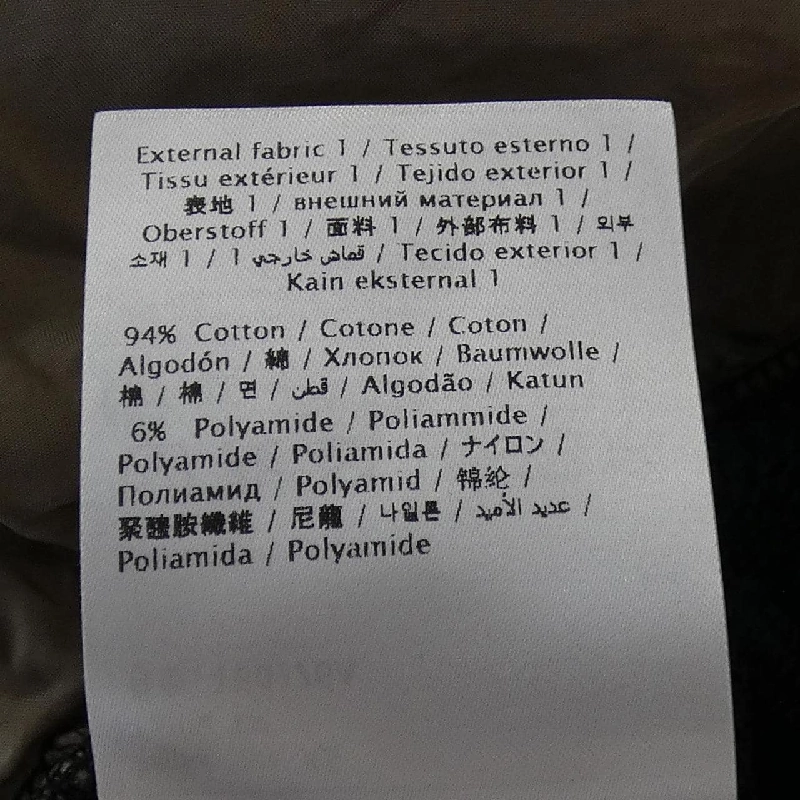 External fabric 1 / Tessuto esterno 1 /
Tissu extérieur 1 / Tejido exterior 1 /
表地 1 / внешний материал 1 /
Oberstoff 1 / 面料 1 / 外部布料 1 / 외부
소재 1 / 1 قماش خارجي / Tecido exterior 1 /
Kain eksternal 1
94% Cotton / Cotone / Coton /
Algodón / 綿 / Хлопок / Baumwolle /
棉 / 棉 / 면 / قطن / Algodão / Katun
6% Polyamide / Poliammide /
Polyamide / Poliamida / ナイロン /
Полиамид / Polyamid / 锦纶 /
聚醯胺纖維 / 尼龍 / 나일론 / عديد الأميد /
Poliamida / Polyamide